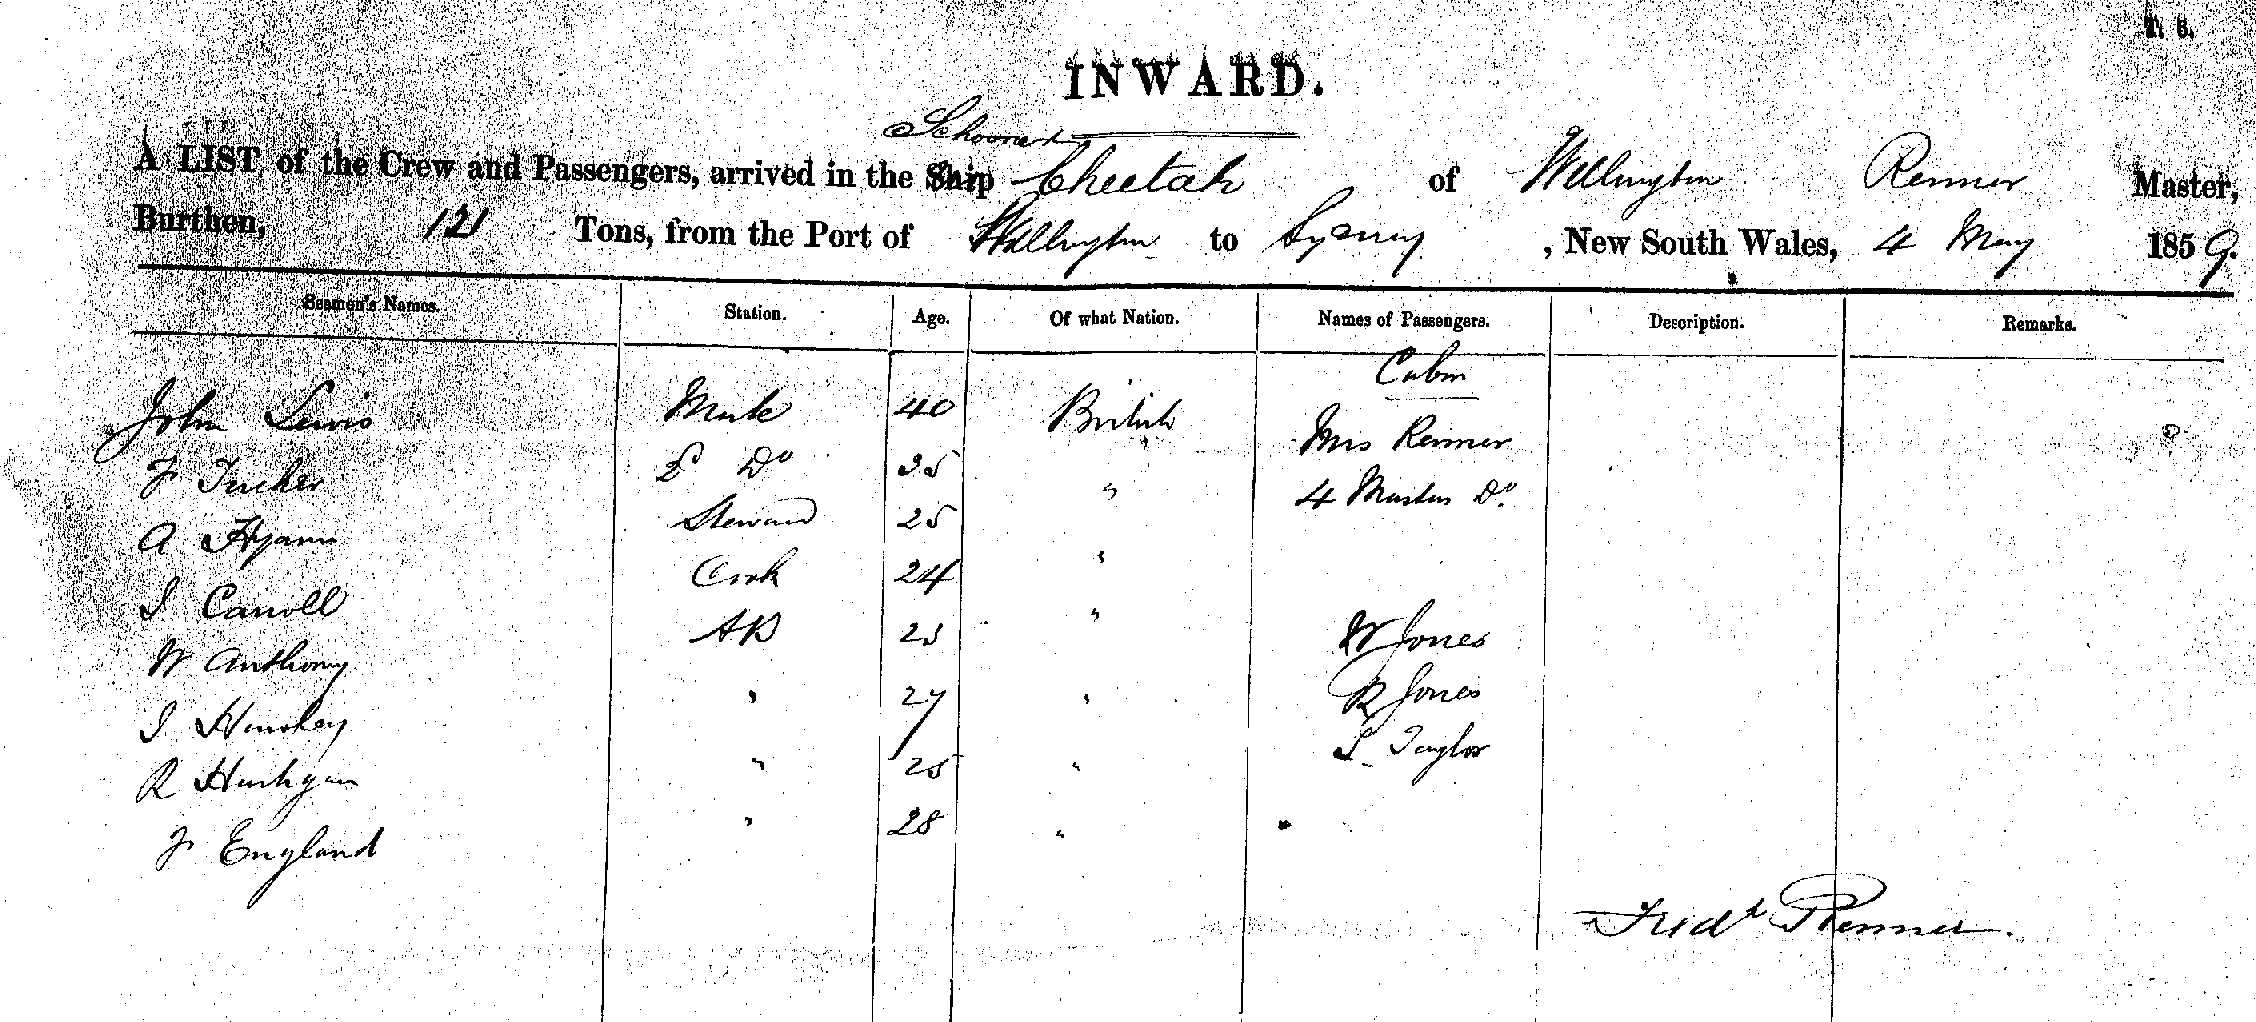 INWARD.
A LIST of the Crew and Passengers, arrived in the Ship Schooner Cheetah of Wellington Renner Master,
Burthen, 121 Tons, from the Port of Wellington to Sydney, New South Wales, 4 May 1859.
Seamen's Names. Station. Age. Of what Nation. Names of Passengers. Description. Remarks.
Cabin
John Lewis Mate 40 British Mrs Renner
F Tucker 2d Do 35 " 4 Masters Do.
A Hyams Steward 25 "
J Carroll Cook 24 "
W Anthony AB 23 W Jones
J 27 " R Jones
R 25 " S Taylor
F England " 28 "
Fredk Renner.